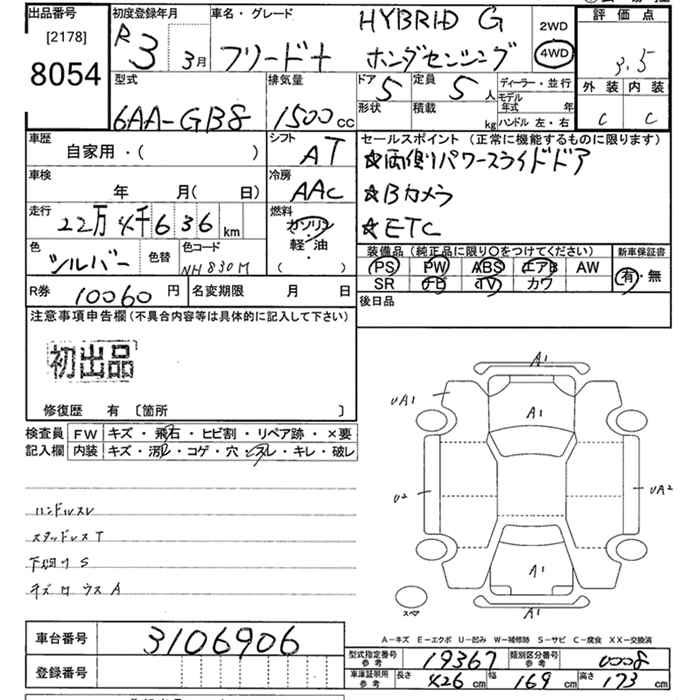 出品番号 初度登録年月 車名・グレード
[2178] R 3 3月 フリード＋ HYBRID G ホンダセンシング 2WD 4WD
8054
評価点
3.5
外装 内装
C C
型式 排気量 ドア 定員 ディーラー・並行
6AA-GB8 1500cc 5 5人 モデル年式 年
形状 積載 kg ハンドル 左・右
車歴 シフト セールスポイント（正常に機能するものに限ります）
自家用・（ ） AT ☆両側パワースライドドア
車検 冷房
年 月（ 日） AAC ☆Bカメラ
走行 燃料
22万4千636km ガソリン・軽油（ ） ☆ETC
色 色替 色コード
シルバー NH830M
装備品（純正品に限り〇をつけてください） 新車保証書
PS PW ABS エアB AW 有・無
SR TV カワ
R券 10060円 名変期限 月 日
後日品
注意事項申告欄（不具合内容等は具体的に記入して下さい）
初出品
修復歴 有 〔箇所 〕
検査員 FW キズ・飛石・ヒビ割・リペア跡・×要
記入欄 内装 キズ・汚れ・コゲ・穴・スレ・キレ・破レ
ハンドルスレ
スタッドレスT
下廻りS
A1
UA1
A1
U2
UA2
A1
スペア
A1
A－キズ E－エクボ U－凹み W－補修跡 S－サビ C－腐食 XX－交換済
車台番号 3106906
登録番号
型式指定番号 参考 19367 類別区分番号 参考 0008
車庫証明用 参考 長さ 426cm 幅 169cm 高さ 173cm